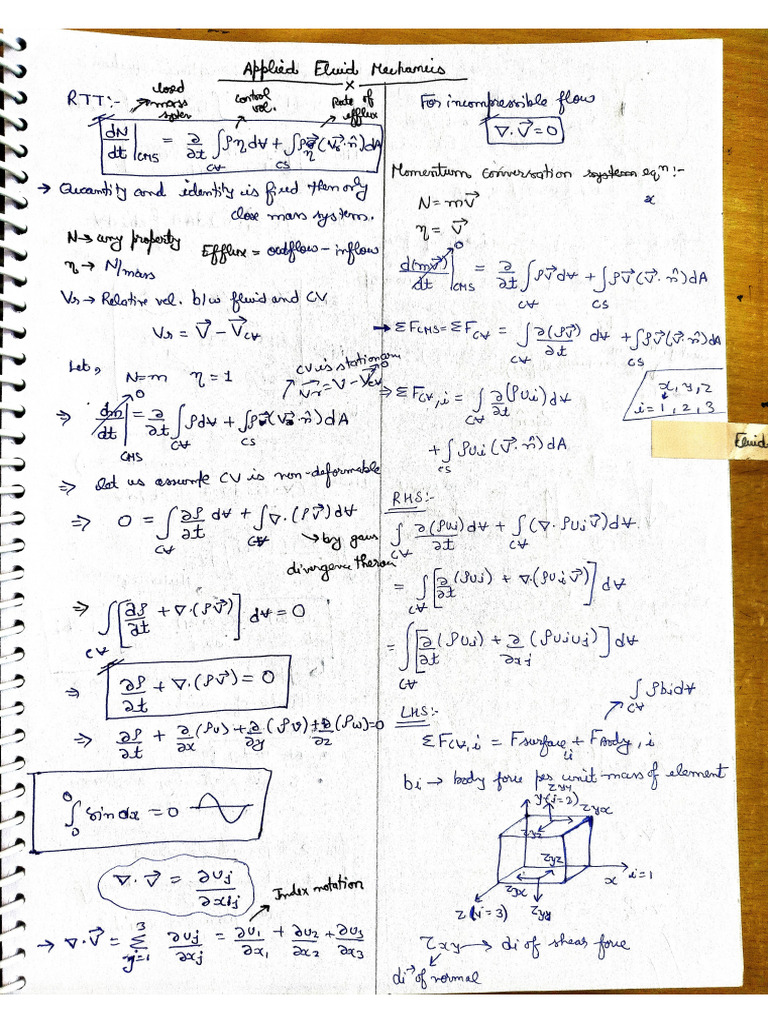 Applied Fluid Mechanics
x
RTT:-
closed mass system
control vol.
Rate of efflux
dN/dt |CMS = ∂/∂t ∫CV ρη dV + ∫CS ρη (Vr⃗·n̂)dA
→ Quantity and identity is fixed then only
close mass system.
N → any property
Efflux = outflow - inflow
η → N/mass
Vr → Relative vel. b/w fluid and CV
Vr = V⃗ - V⃗CV
Let, N=m η=1
CV is stationary
Vr⃗ = V - VCV 0
⇒ dm/dt |CMS 0 = ∂/∂t ∫CV ρdV + ∫CS ρ(Vr⃗·n̂)dA
⇒ let us assume CV is non-deformable
⇒ 0 = ∫CV ∂ρ/∂t dV + ∫CV ∇·(ρV⃗)dV
↳ by gaus
divergence theron
⇒ ∫CV [∂ρ/∂t + ∇·(ρV⃗)] dV = 0
⇒ ∂ρ/∂t + ∇·(ρV⃗) = 0
⇒ ∂ρ/∂t + ∂/∂x(ρu) + ∂/∂y(ρv) + ∂/∂z(ρw)=0
∫ sin dx = 0
∇·V⃗ = ∂uj/∂xj
Index notation
→ ∇·V⃗ = Σ³j=1 ∂uj/∂xj = ∂u1/∂x1 + ∂u2/∂x2 + ∂u3/∂x3
For incompressible flow
∇·V⃗ = 0
Momentum conversation system eqⁿ:-
N = mV⃗
x
η = V⃗
d(mV⃗)/dt |CMS 0 = ∂/∂t ∫CV ρV⃗dV + ∫CS ρV⃗(V⃗·n̂)dA
→ ΣFCMS = ΣFCV = ∫CV ∂(ρV⃗)/∂t dV + ∫CS ρV⃗(V⃗·n̂)dA
⇒ ΣFCV,i = ∫CV ∂(ρui)/∂t dV
x, y, z
i = 1, 2, 3
+ ∫CS ρui(V⃗·n̂)dA
Fluid
RHS:-
∫CV ∂(ρui)/∂t dV + ∫CV (∇·ρuiV⃗)dV
= ∫CV [∂/∂t(ρui) + ∇·(ρuiV⃗)] dV
= ∫CV [∂/∂t(ρui) + ∂/∂xj (ρuiuj)] dV
∫CV ρbidV
LHS:-
ΣFCV,i = Fsurface,i + FBody,i
bi → body force per unit mass of element
τyy
y(j=2)
τyx
τyz
τyz
x
i=1
τyx
z(i=3)
τyy
τxy → di of shear force
diⁿ of normal